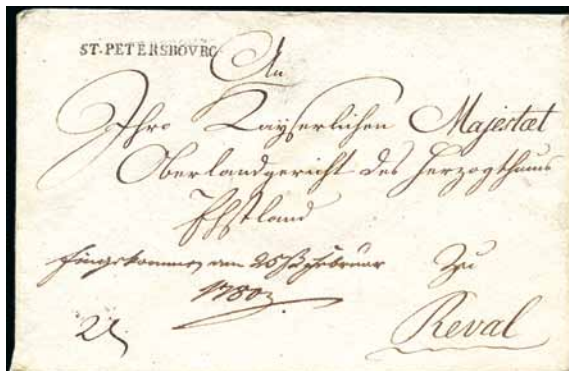 ST. PETERSBOVRG
An
Ihro Kayserlichen Majestæt
Oberlandgericht des Herzogthums
Ehstland
Eingekommen am 25 Februar
1780
Zu
Reval